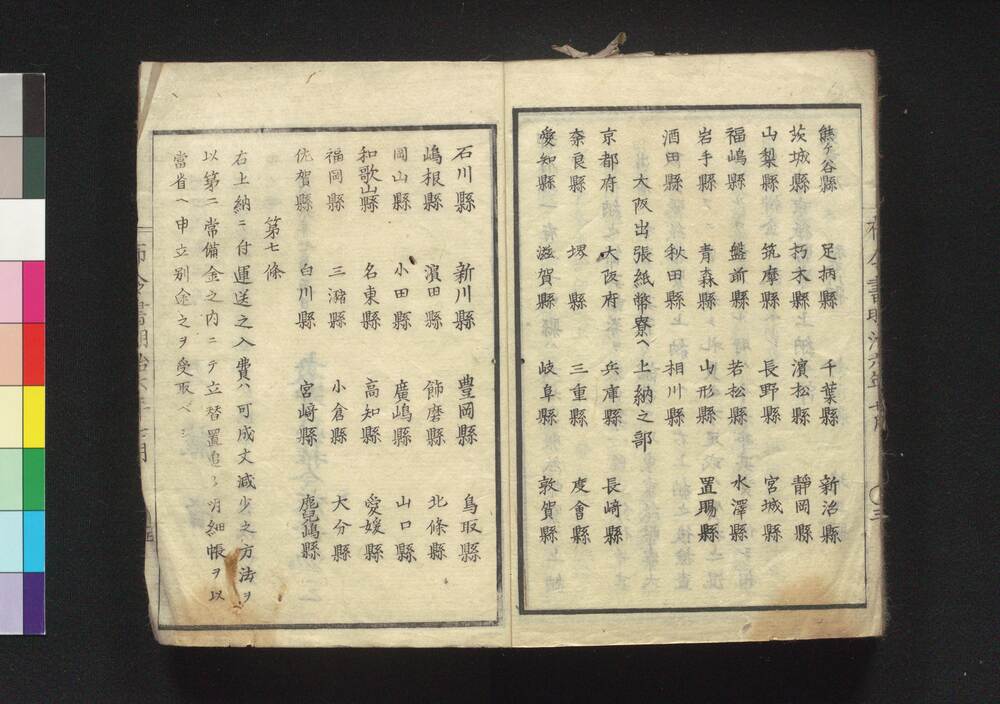 熊ヶ谷縣 足柄縣 千葉縣 新治縣
茨城縣 朽木縣 濱松縣 靜岡縣
山梨縣 筑摩縣 長野縣 宮城縣
福嶋縣 盤前縣 若松縣 水澤縣
岩手縣 青森縣 山形縣 置賜縣
酒田縣 秋田縣 相川縣
大阪出張紙幣寮ヘ上納之部
京都府 大阪府 兵庫縣 長崎縣
奈良縣 堺縣 三重縣 度會縣
愛知縣 滋賀縣 岐阜縣 敦賀縣
石川縣 新川縣 豊岡縣 鳥取縣
嶋根縣 濱田縣 飾磨縣 北條縣
岡山縣 小田縣 廣嶋縣 山口縣
和歌山縣 名東縣 高知縣 愛媛縣
福岡縣 三潴縣 小倉縣 大分縣
佐賀縣 白川縣 宮崎縣 鹿児嶋縣
第七條
右上納ニ付運送之入費ハ可成丈減少之方法ヲ
以第二常備金之内ニテ立替置追テ明細帳ヲ以
當省ヘ申立別途之ヲ受取ベシ